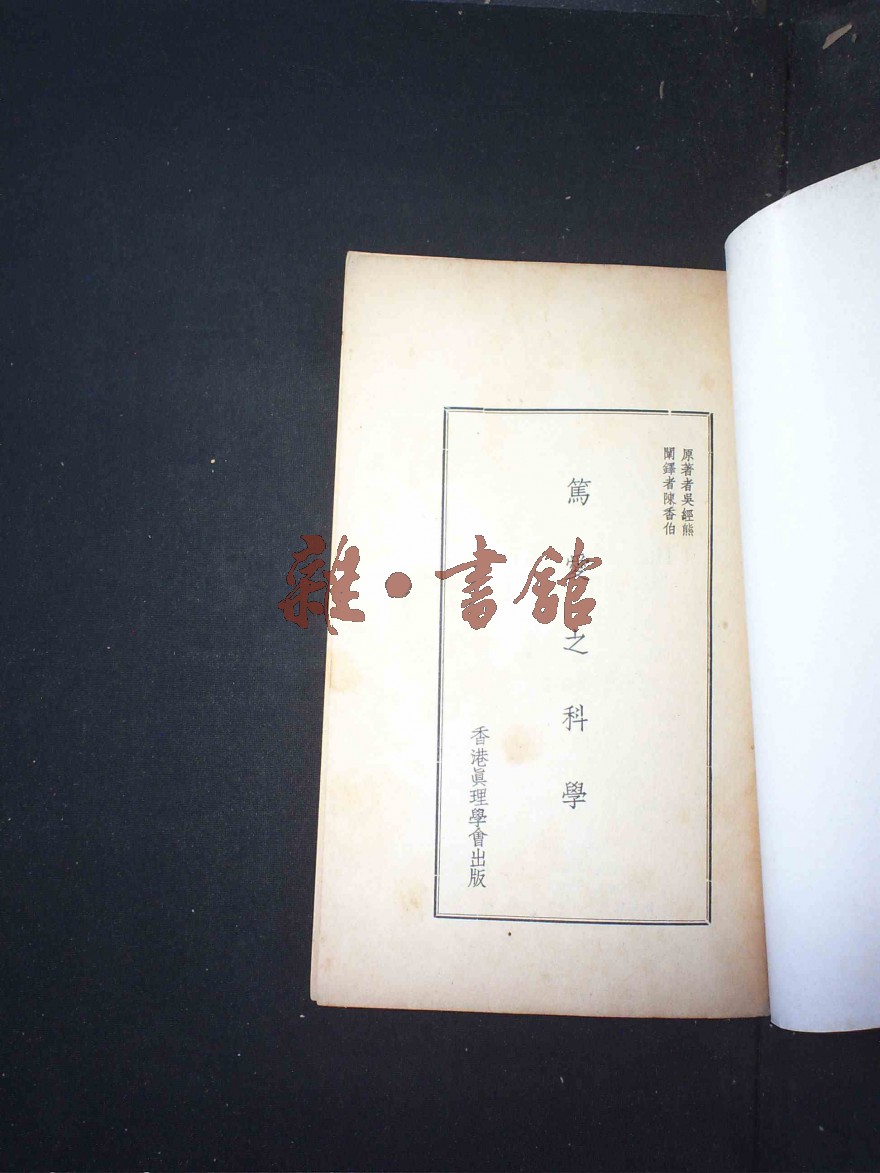 原著者吳經熊
闡鐸者陳香伯
篤愛之科學
香港眞理學會出版
雜•書館